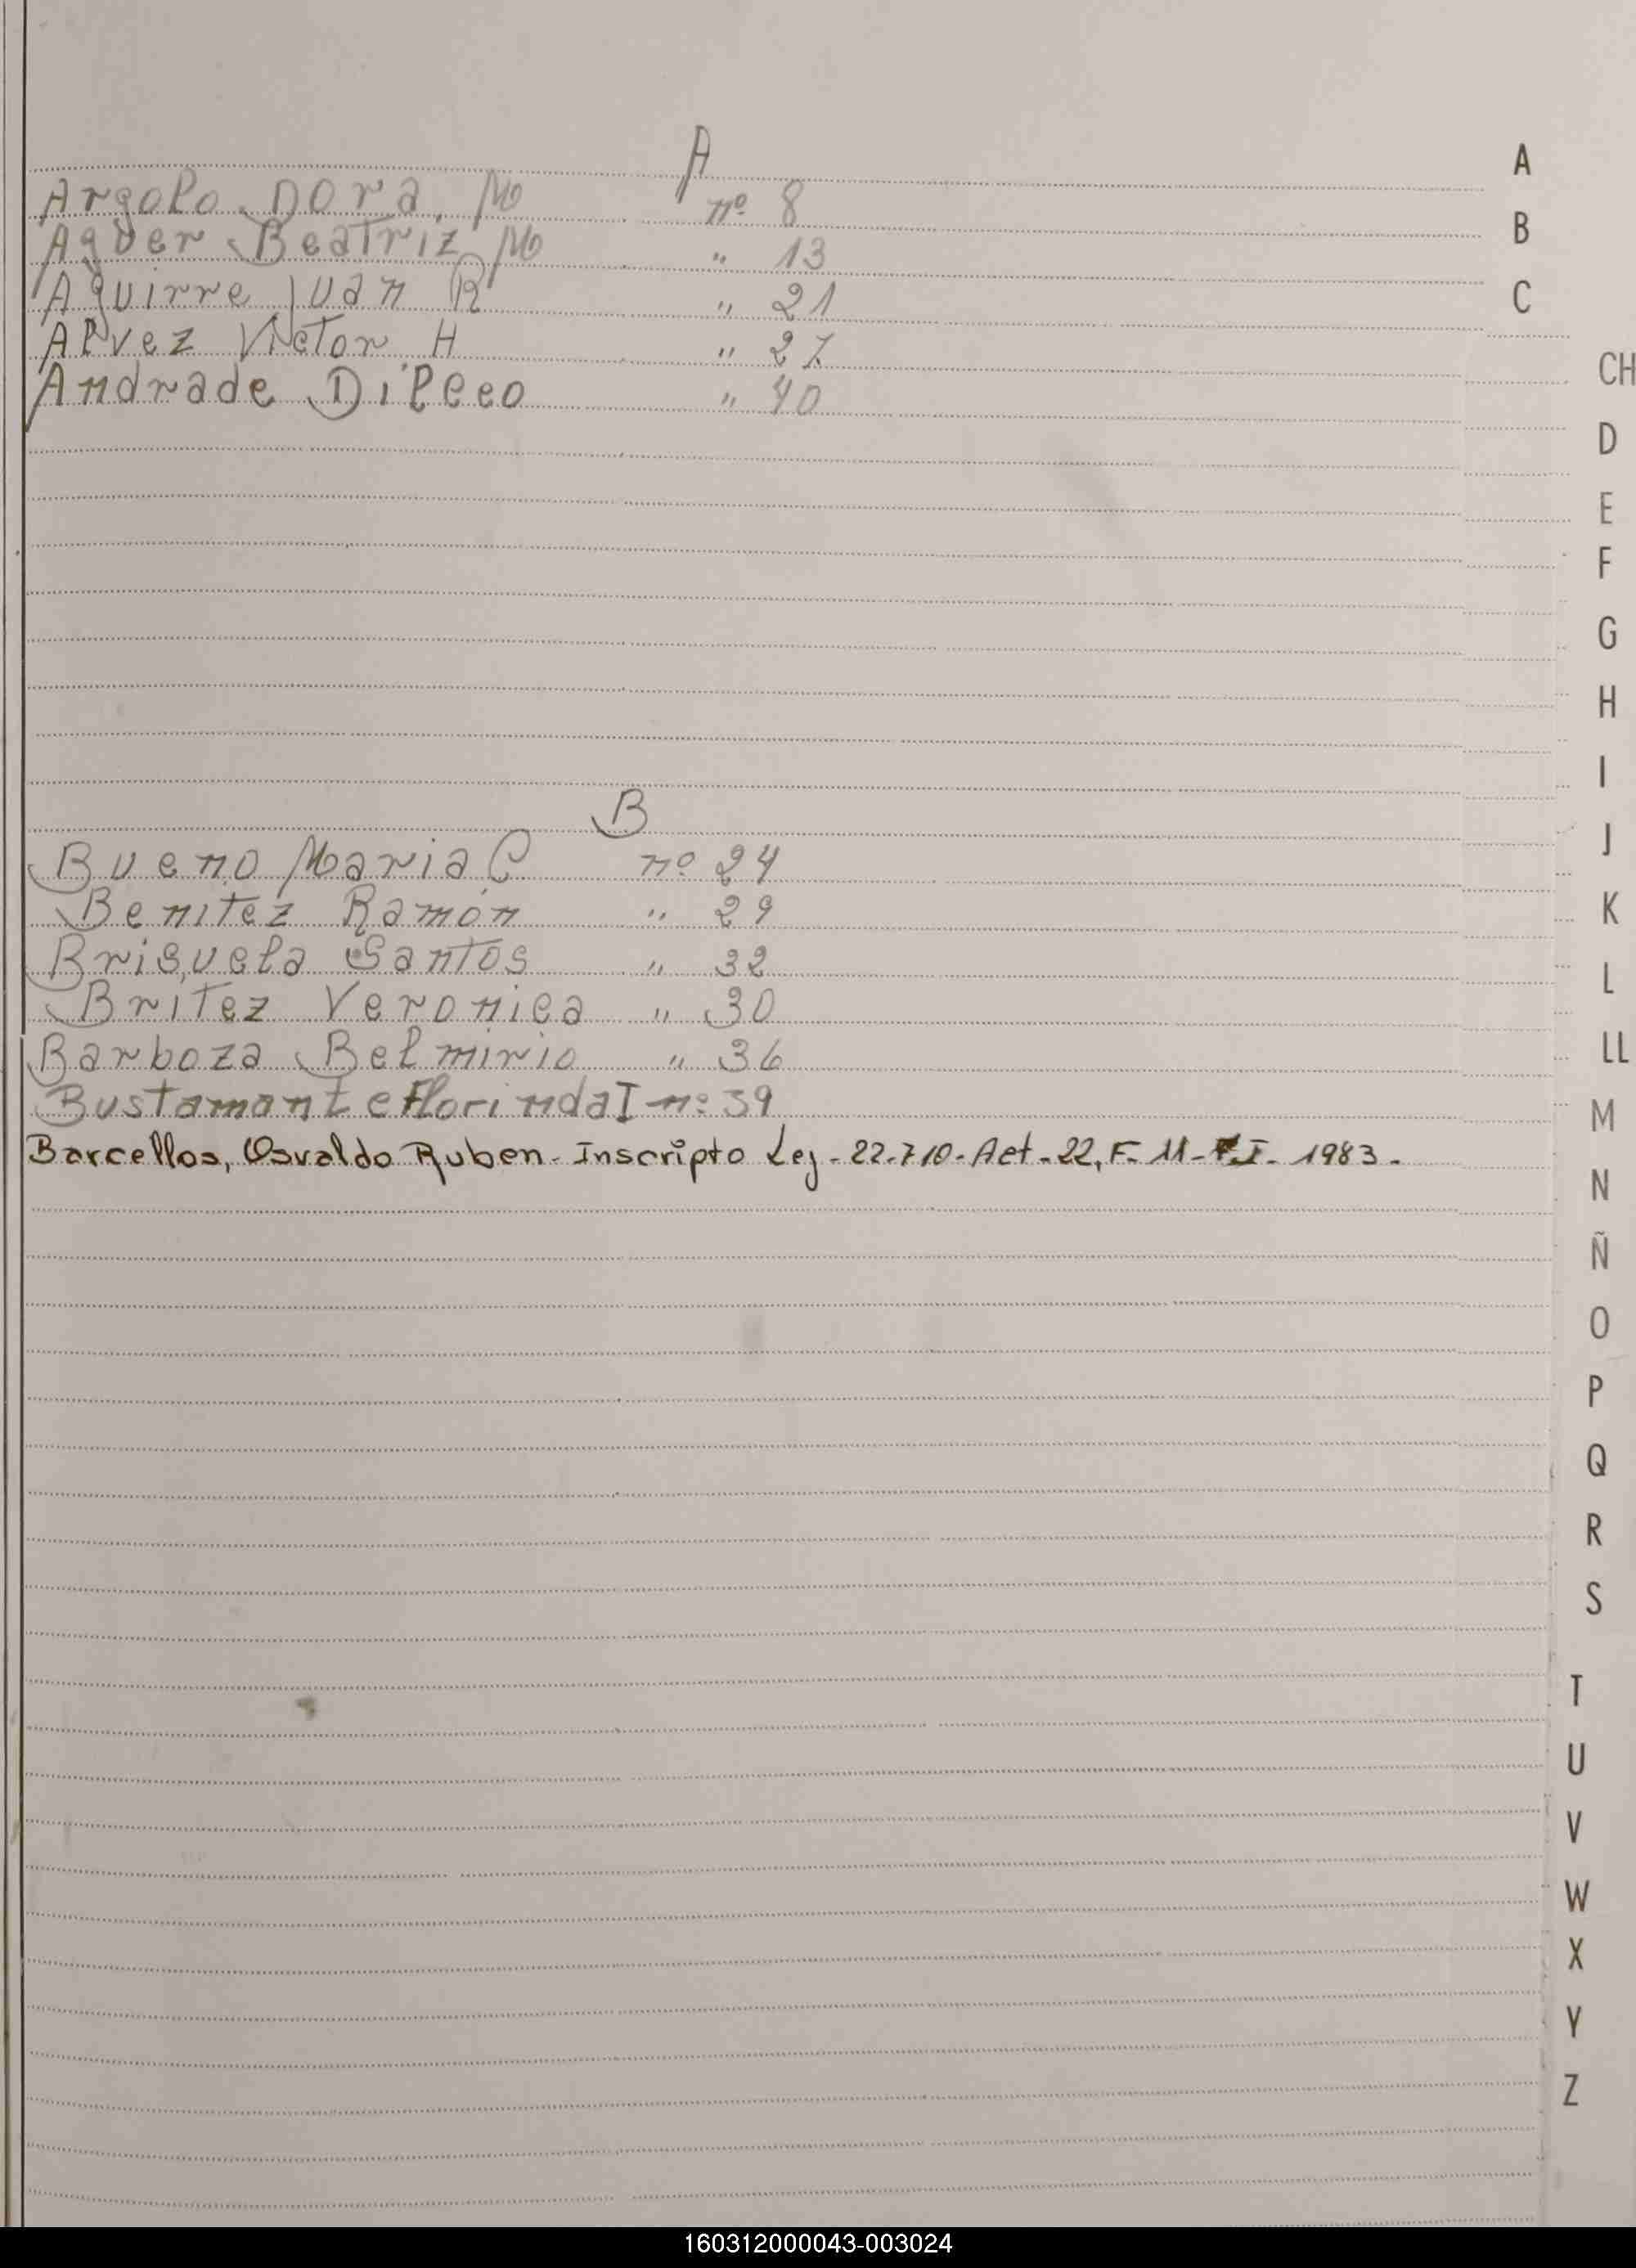 A
Argolo Dora M nº 8
Aguer Beatriz M " 13
Aguirre Juan R " 21
Alvez Victor H " 27
Andrade Dilceo " 40
B
Bueno Maria C nº 24
Benitez Ramón " 29
Brisuela Santos " 32
Britez Veronica " 30
Barboza Belmirio " 36
Bustamante Florinda I nº 39
Barcellos, Osvaldo Ruben - Inscripto Ley - 22.710 - Act - 22, F - 11 - T. I - 1983 -
A
B
C
CH
D
E
F
G
H
I
J
K
L
LL
M
N
Ñ
O
P
Q
R
S
T
U
V
W
X
Y
Z
160312000043-003024